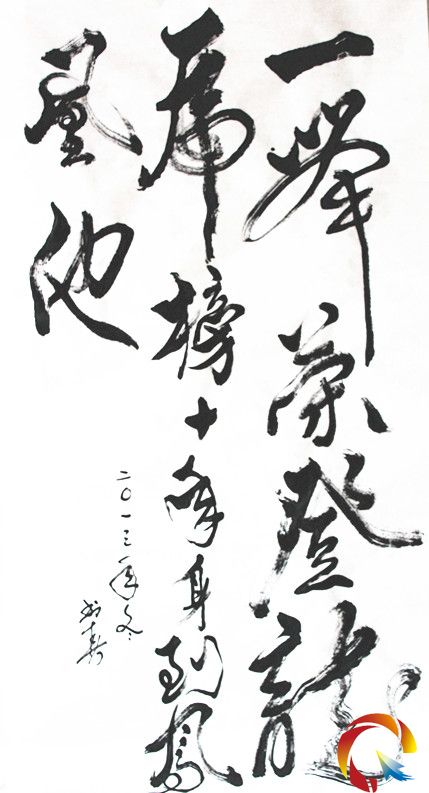 一举荣登龍
虎榜十年身到鳳
凰池
二〇一三年冬